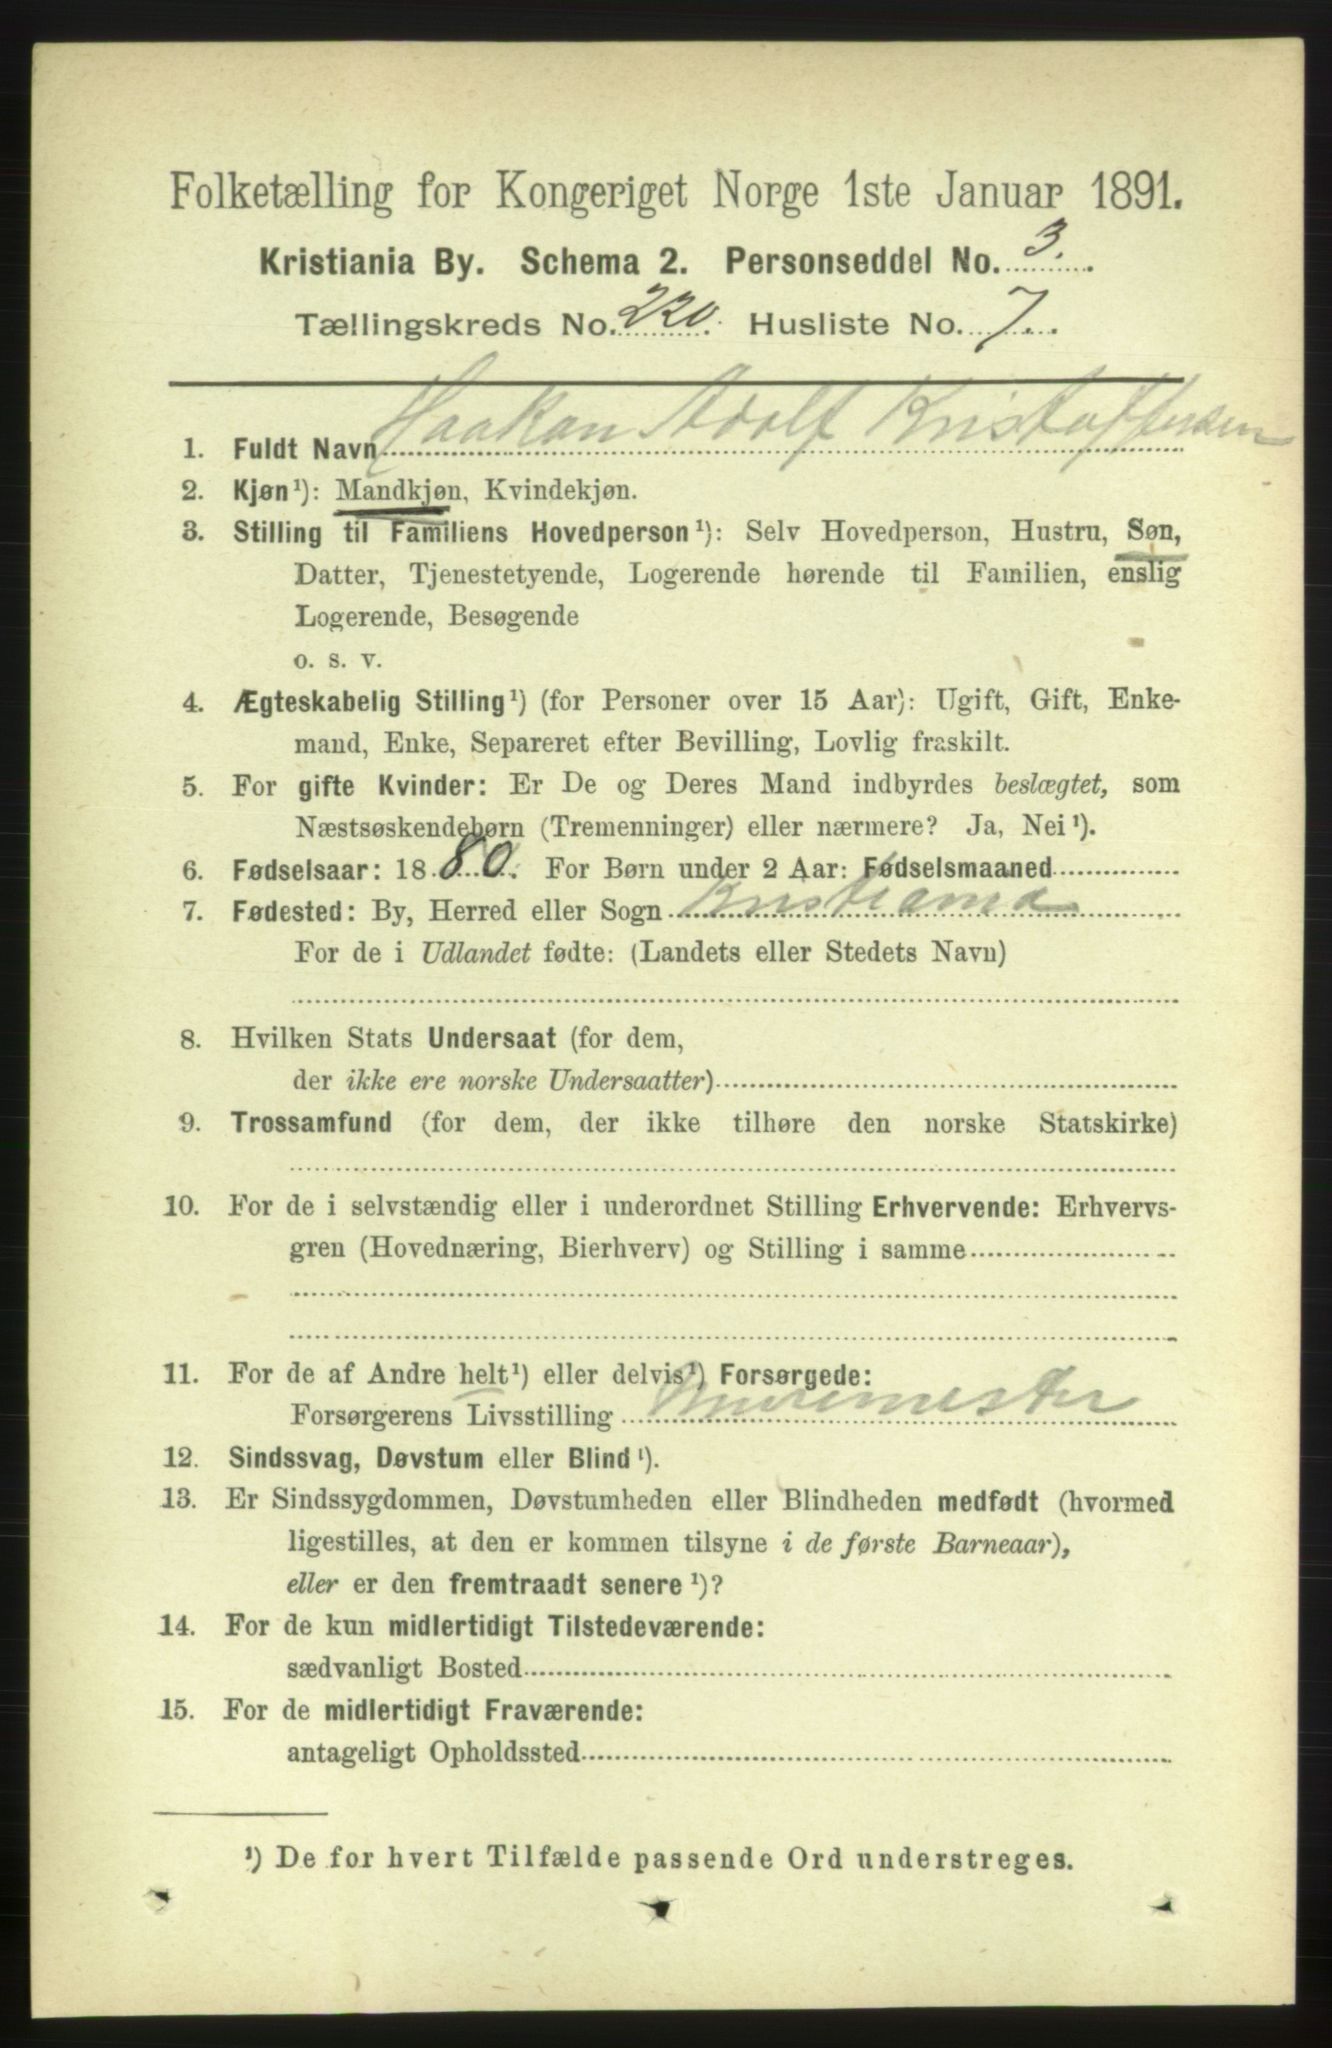 Folketælling for Kongeriget Norge 1ste Januar 1891.
Kristiania By. Schema 2. Personseddel No. 3.
Tællingskreds No. 220. Husliste No. 7.
1. Fuldt Navn Haakon Adolf Kristoffersen
2. Kjøn¹): Mandkjøn, Kvindekjøn.
3. Stilling til Familiens Hovedperson¹): Selv Hovedperson, Hustru, Søn,
Datter, Tjenestetyende, Logerende hørende til Familien, enslig
Logerende, Besøgende
o. s. v.
4. Ægteskabelig Stilling¹) (for Personer over 15 Aar): Ugift, Gift, Enke-
mand, Enke, Separeret efter Bevilling, Lovlig fraskilt.
5. For gifte Kvinder: Er De og Deres Mand indbyrdes beslægtet, som
Næstsøskendebørn (Tremenninger) eller nærmere? Ja, Nei¹).
6. Fødselsaar: 1880. For Børn under 2 Aar: Fødselsmaaned
7. Fødested: By, Herred eller Sogn Kristiania
For de i Udlandet fødte: (Landets eller Stedets Navn)
8. Hvilken Stats Undersaat (for dem,
der ikke ere norske Undersaatter)
9. Trossamfund (for dem, der ikke tilhøre den norske Statskirke)
10. For de i selvstændig eller i underordnet Stilling Erhvervende: Erhvervs-
gren (Hovednæring, Bierhverv) og Stilling i samme
11. For de af Andre helt¹) eller delvis¹) Forsørgede:
Forsørgerens Livsstilling Muremester
12. Sindssvag, Døvstum eller Blind¹).
13. Er Sindssygdommen, Døvstumheden eller Blindheden medfødt (hvormed
ligestilles, at den er kommen tilsyne i de første Barneaar),
eller er den fremtraadt senere¹)?
14. For de kun midlertidigt Tilstedeværende:
sædvanligt Bosted
15. For de midlertidigt Fraværende:
antageligt Opholdssted
¹) De for hvert Tilfælde passende Ord understreges.